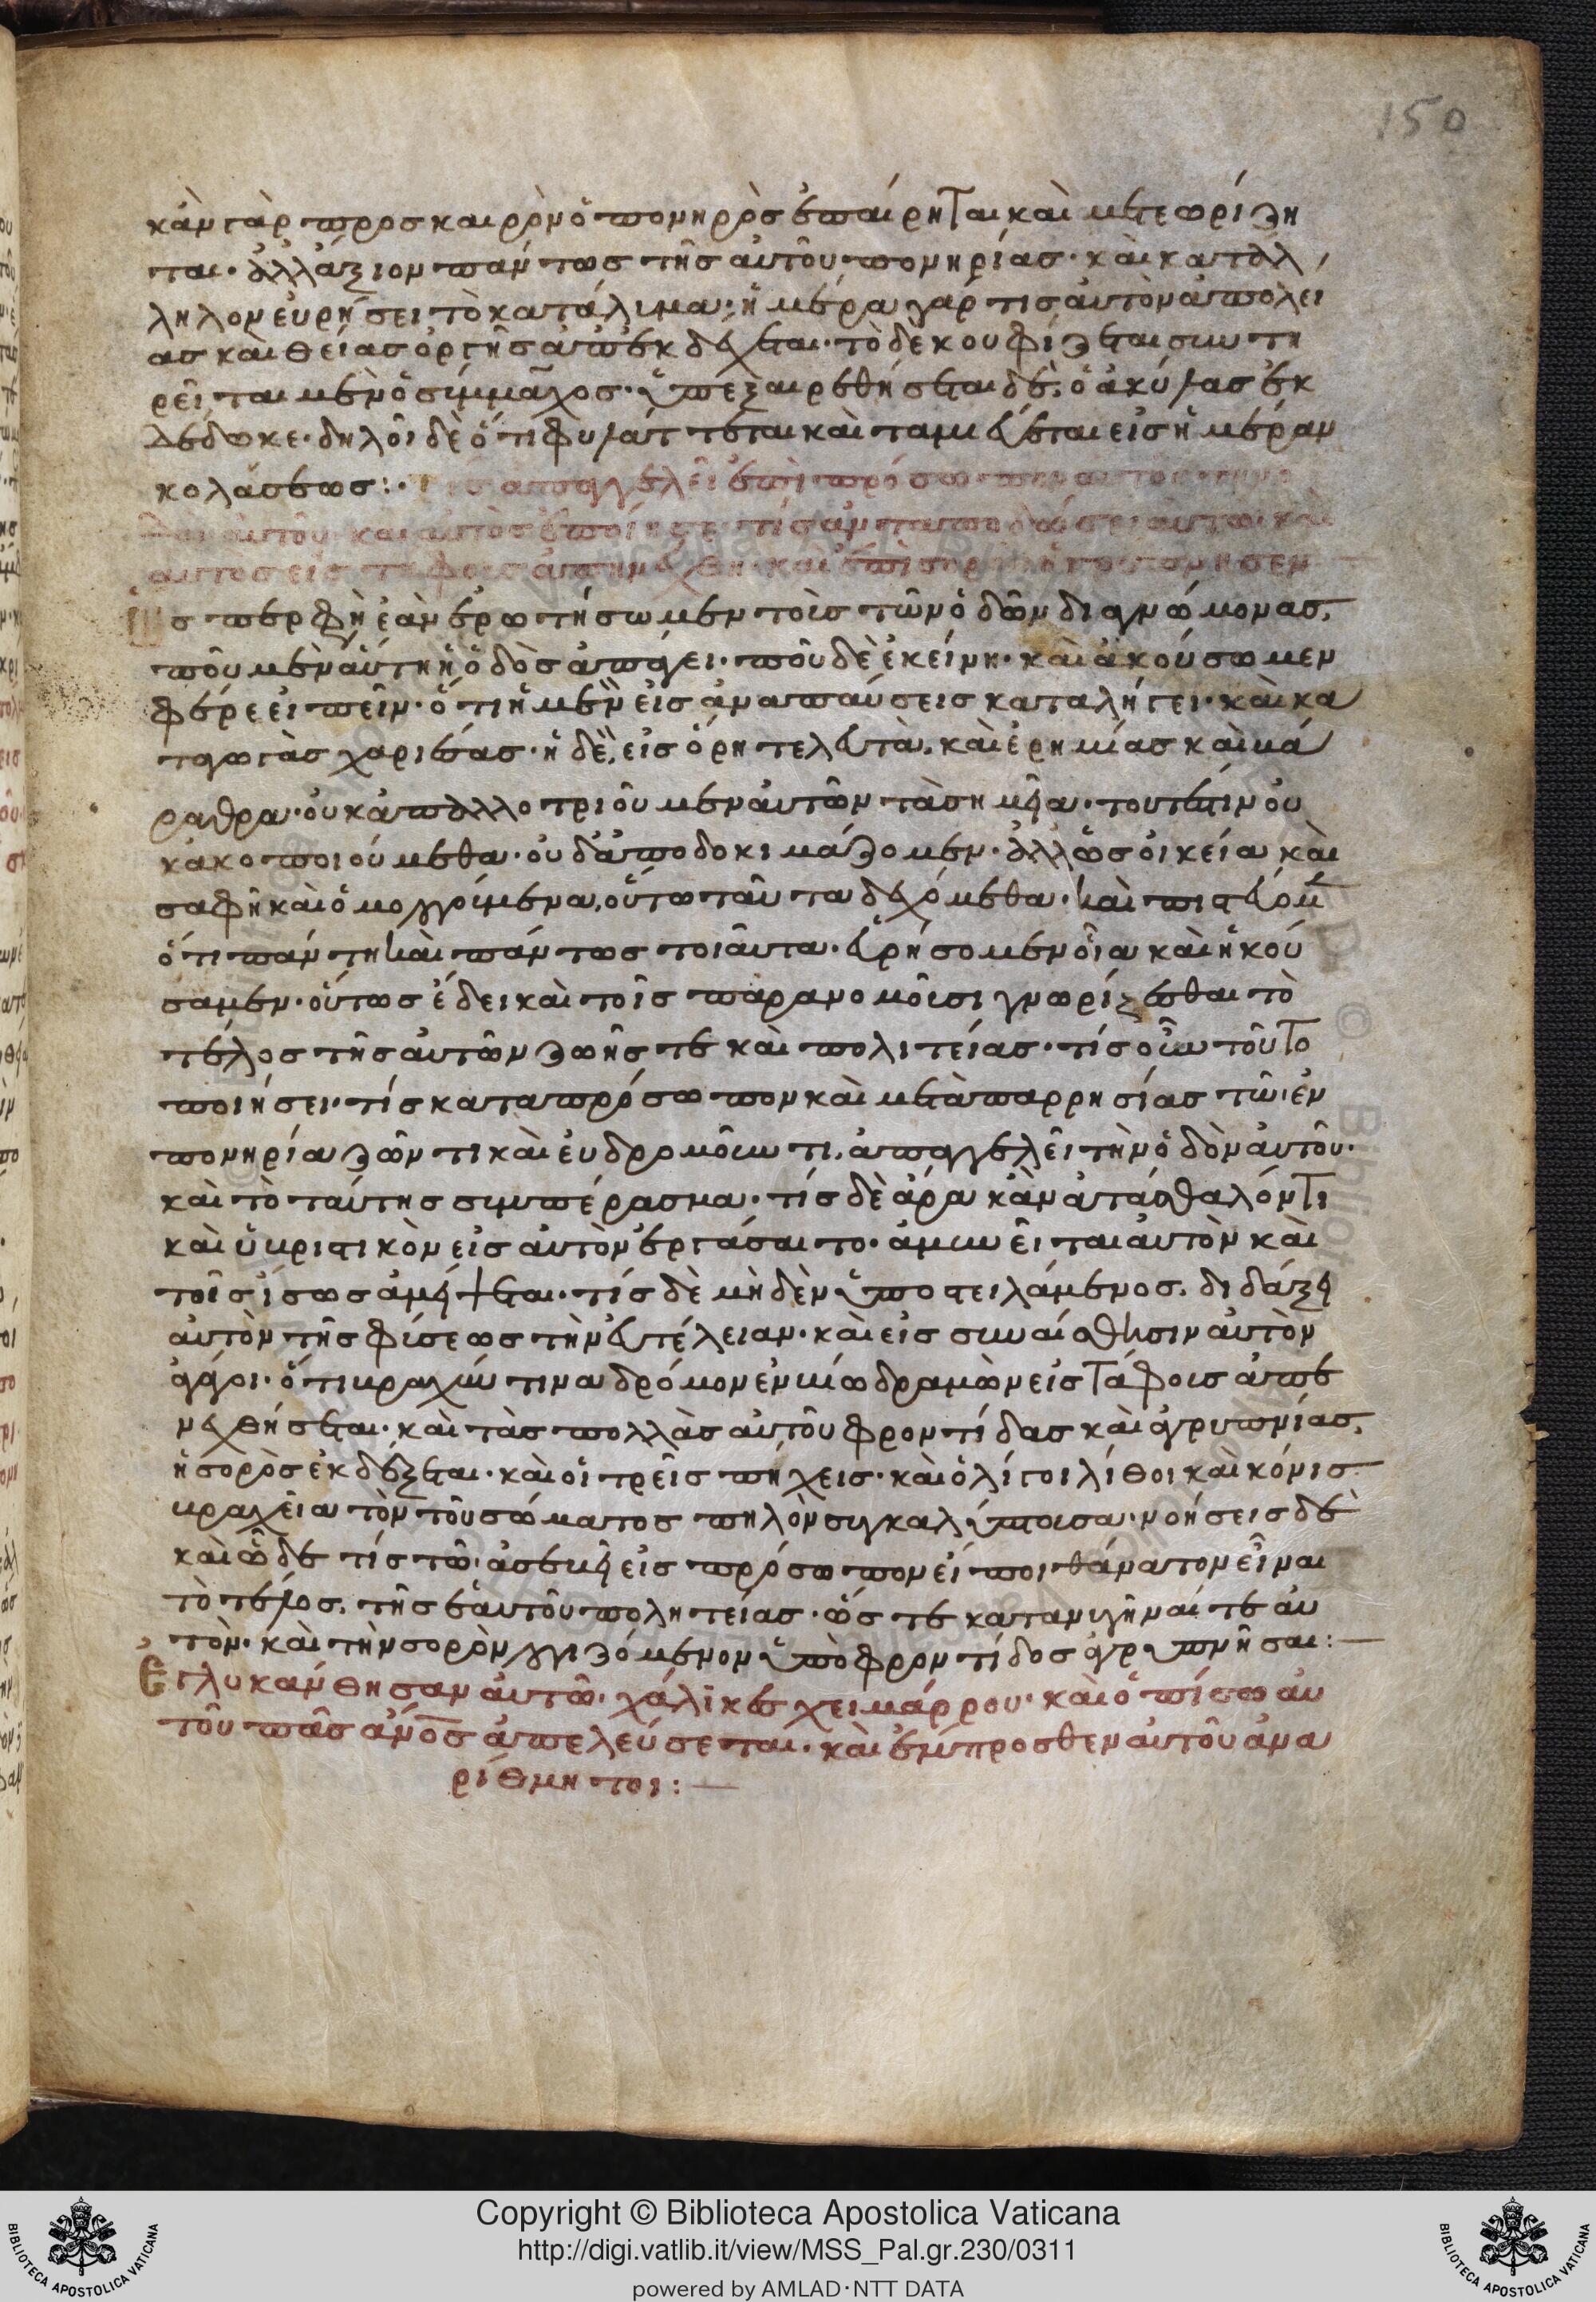 150
κἀν γὰρ προσκαιρὸν ὁ πονηρὸς ἐπαίρηται καὶ μετεωρίζη
ται· ἀλλ ἄξιον πάντως τῆς αὐτοῦ πονηρίας· καὶ κατάλ
ληλον εὑρήσει τὸ κατάλυμα· ἡμέρα γάρ τις αὐτὸν ἀπωλεί
ας καὶ θείας ὀργῆς ἀπεκδέχεται· τὸ δὲ κουφίζεται συντη
ρεῖται μὲν ὁ σύμμαχος· ὑπεξαιρεθήσεται δὲ, ὁ ἀκύλας ἐκ
δέδωκε· δηλοῖ δὲ ὅτι φυλάττεται καὶ ταμιεύεται εἰς ἡμέραν
κολάσεως:· ἀπαγγελεῖ ἐπὶ πρόσωπον αὐτοῦ τὴν ὁ
δὸν αὐτοῦ καὶ αὐτὸς ἐποίησε· τίς ἀνταποδώσει αὐτῶ· καὶ
αὐτὸς εἰς τάφους ἀπηνέχθη· καὶ ἐπὶ σορῶν ἠγρύπνησεν
ὥσπερ φὴ ἐὰν ἐρωτήσωμεν τοῖς τῶν ὁδῶν διαγνώμονας,
ποῦ μὲν αὕτη ἡ ὁδὸς ἀπάγει· ποῦ δὲ ἐκείνη· καὶ ἀκούσωμεν
φέρε εἰπεῖν· ὅτι ἡ μὲν εἰς ἀναπαύσεις καταλήγει· καὶ κα
ταγωγὰς χαριέσας· ἡ δὲ, εἰς ὄρη τελευτὰ, καὶ ἐρημίας καὶ βά
ραθρα· οὐκ ἀπαλλοτριοῦμεν αὐτῶν τὰ σημεῖα· τουτέστιν οὐ
κακοποιούμεθα· οὐδ ἀποδοκιμάζομεν· ἀλλ ὡς οἰκεία καὶ
σαφῆ καὶ ὁμολογούμενα, οὕτω ταῦτα δεχόμεθα· καὶ πιστεύομεν
ὅτι πάντη καὶ πάντως τοιαῦτα· εὑρήσομεν οἷα καὶ ἠκού
σαμεν· οὕτως ἔδει καὶ τοῖς παρανομοῦσι γνωρίζεσθαι τὸ
τέλος τῆς αὐτῶν ζωῆς τε καὶ πολιτείας· τίς οὖν τοῦτο
ποιήσει· τίς κατὰ πρόσωπον καὶ μετὰ παρρησίας τῶ ἐν
πονηρία ζῶντι καὶ εὐδρομοῦντι, ἀπαγγελεῖ τὴν ὁδὸν αὐτοῦ·
καὶ τὸ ταύτης συμπέρασμα· τίς δὲ ἄρα κἀν ἀτάσθαλόν τι
καὶ ὑβριστικὸν εἰς αὐτὸν ἐργάσαιτο· ἀμυνεῖται αὐτὸν καὶ
τοῖς ἴσως ἀμείψεται· τίς δὲ μηδὲν ὑποστειλάμενος, διδάξει
αὐτὸν τῆς φύσεως τὴν εὐτέλειαν· καὶ εἰς συναίσθησιν αὐτὸν
ἀγάγοι· ὅτι βραχύν τινα δρόμον ἐν βίω δραμὼν εἰς τάφοις ἀπε
νεχθήσεται· καὶ τὰς πολλὰς αὐτοῦ φροντίδας καὶ ἀγρυπνίας,
ἡ σορὸς ἐκδέξεται· καὶ οἱ τρεῖς πήχεις· καὶ ὀλίγοι λίθοι καὶ κόνις
βραχεῖα τὸν τοῦ σώματος πηλὸν συγκαλύπτουσα· νοήσεις δὲ
καὶ ὧδε τίς τῶ ἀσεβεῖ εἰς πρόσωπον εἴποι θάνατον εἶναι
τὸ τέλος, τῆς ἑαυτοῦ πολητείας· ὥς τε καταμιγῆναί τε αὐ
τὸν· καὶ τὴν σορὸν λογιζόμενον ὑπὸ φροντίδος ἀγρυπνῆσαι:
Ἐγλυκάνθησαν αὐτῶ· χάλικες χειμάρρου· καὶ ὀπίσω αὐ
τοῦ πᾶς ἄνος ἀπελεύσεται· καὶ ἔμπροσθεν αὐτοῦ ἀνα
ρίθμητοι:
Copyright © Biblioteca Apostolica Vaticana
http://digi.vatlib.it/view/MSS_Pal.gr.230/0311
powered by AMLAD·NTT DATA
BIBLIOTECA APOSTOLICA VATICANA
BIBLIOTECA APOSTOLICA VATICANA